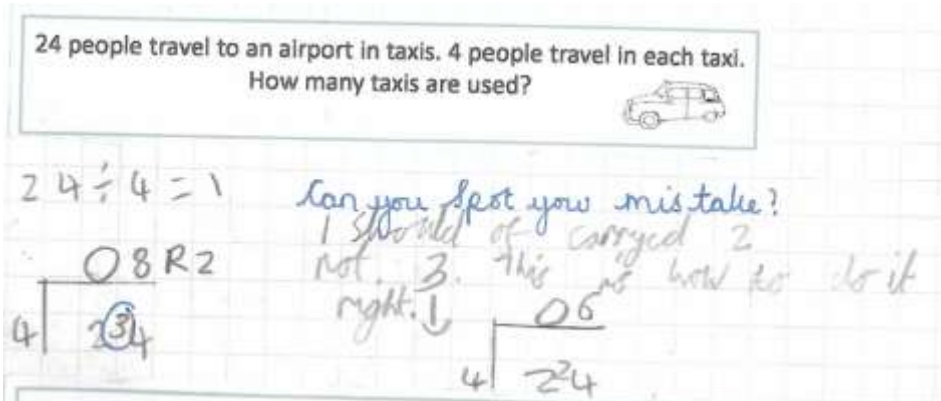 24 people travel to an airport in taxis. 4 people travel in each taxi.
How many taxis are used?
24 ÷ 4 = 1
Can you spot your mistake?
I should of carryed 2
not 3. This is how to do it
right. ↓
08R2
4 2 3 4
06
4 2 2 4